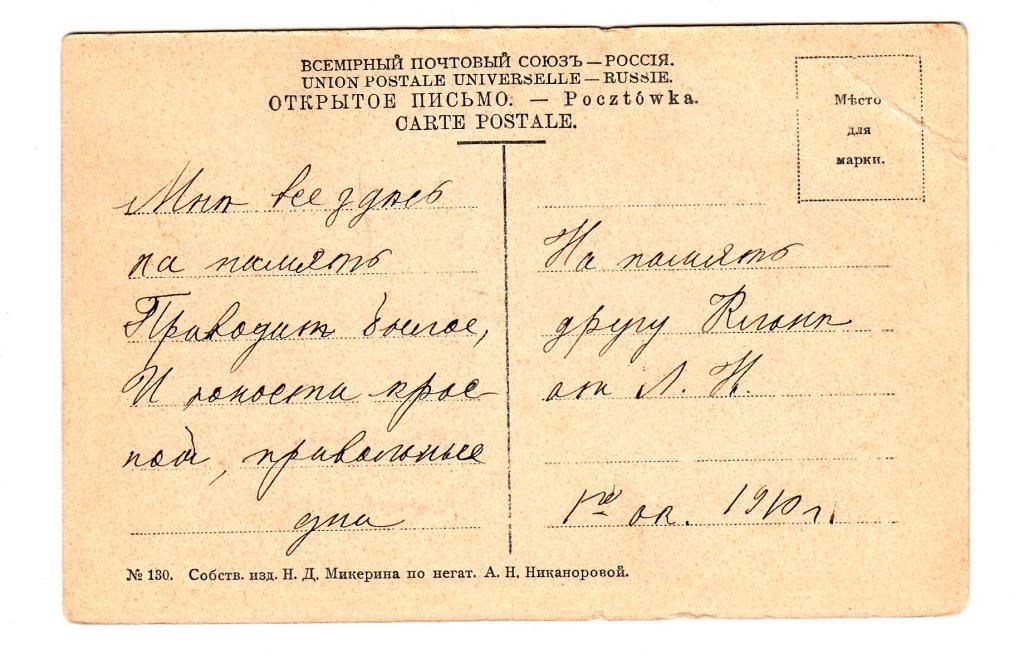 ВСЕМІРНЫЙ ПОЧТОВЫЙ СОЮЗЪ — РОССІЯ.
UNION POSTALE UNIVERSELLE — RUSSIE.
ОТКРЫТОЕ ПИСЬМО. — Pocztówka.
CARTE POSTALE.
Мѣсто
для
марки.
Мнѣ все здѣсь
на память
Приводитъ былое,
И юности крас-
ной, привольные
дни
На память
другу
отъ Л. Н.
1го ок. 1910 г.
№ 130. Собств. изд. Н. Д. Микерина по негат. А. Н. Никаноровой.